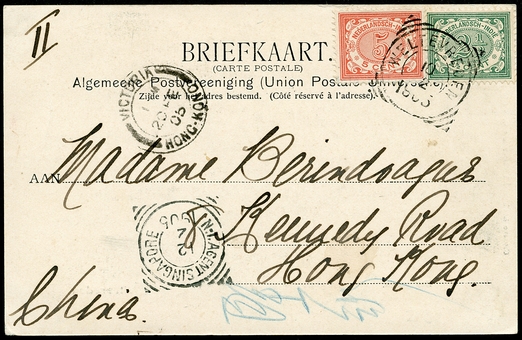 II
NEDERLANDSCH-INDIË
5
NEDERLANDSCH-INDIË
BRIEFKAART.
(CARTE POSTALE)
Algemeene Postvereeniging (Union Postale Universelle).
Zijde voor het adres bestemd. (Côté réservé à l'adresse).
WELTEVREDEN
VICTORIA
HONG-KONG
05
AAN Madame Berindoagues
N-I AGENT SINGAPORE
1905
Kennedy Road
Hong Kong.
China.